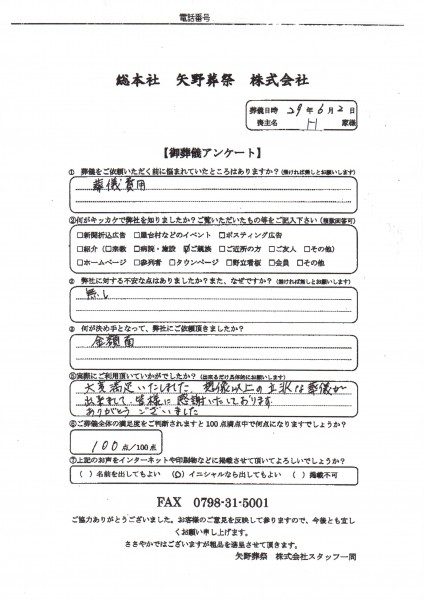 電話番号
総本社 矢野葬祭 株式会社
葬儀日時 29年6月2日
喪主名 H 家様
【御葬儀アンケート】
① 葬儀をご依頼いただく前に悩まれていたところはありますか？(無ければ無しとお願いします)
葬儀費用
②何がキッカケで弊社を知りましたか？ご覧いただいたもの等をご記入下さい(複数回答可)
□新聞折込広告 □屋台村などのイベント ☑ポスティング広告
□紹介(□宗教 □病院・施設 ☑ご親族 □ご近所の方 □ご友人 □その他)
□ホームページ □参列者 □タウンページ □野立看板 □会員 □その他
② 弊社に対する不安な点はありましたか？また、なぜですか？(無ければ無しとお願いします)
無し
③ 何が決め手となって、弊社にご依頼頂きましたか？
金額面
⑤実際にご利用頂いていかがでしたか？(出来るだけ具体的にお願いします)
大変満足いたしました。想像以上の立派な葬儀が
出来まして、皆様に感謝いたしております
ありがとうございました
⑥ご葬儀全体の満足度をご判断されますと100点満点中で何点になりますでしょうか？
100点/100点
⑦上記のお声をインターネットや印刷物などに掲載させて頂いてよろしいでしょうか？
( )名前を出してもよい (○)イニシャルなら出してもよい ( )掲載不可
FAX 0798-31-5001
ご協力ありがとうございました。お客様のご意見を反映して参りますので、今後とも宜し
くお願い申し上げます。
ささやかではございますが粗品を進呈させて頂きます。
矢野葬祭 株式会社スタッフ一同